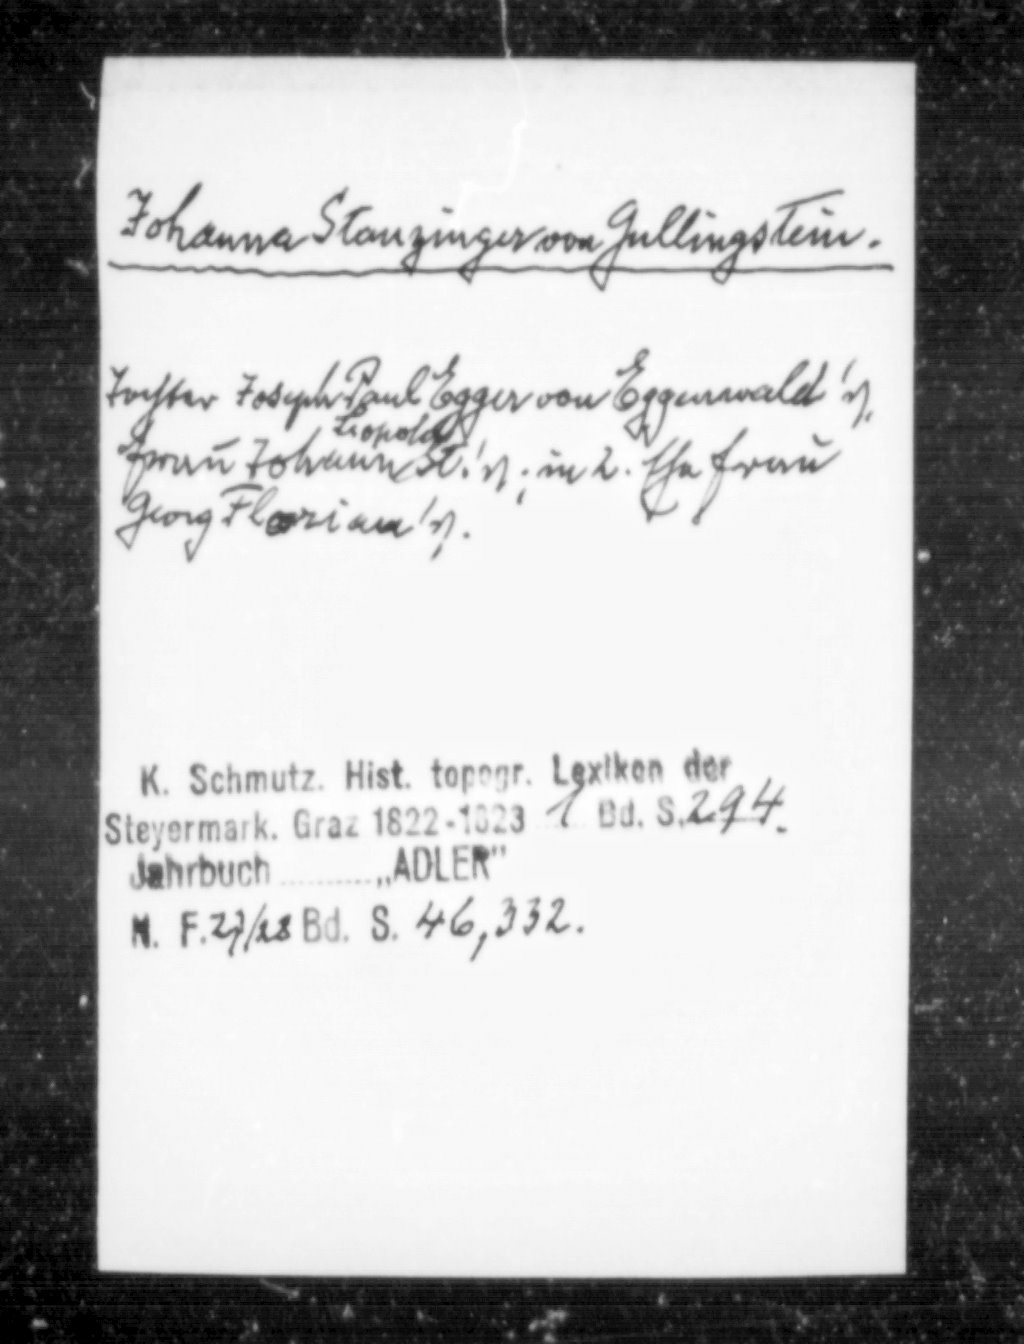 Johanna Stanzinger von Gullingstein.
Tochter Joseph Paul Egger von Eggenwald
Leopold
Frau Johann St. in 2. Ehe Frau
Georg Florian
K. Schmutz. Hist. topogr. Lexikon der
Steyermark. Graz 1822-1823 1 Bd. S. 294.
Jahrbuch ............„ADLER"
N. F. 27/28 Bd. S. 46, 332.